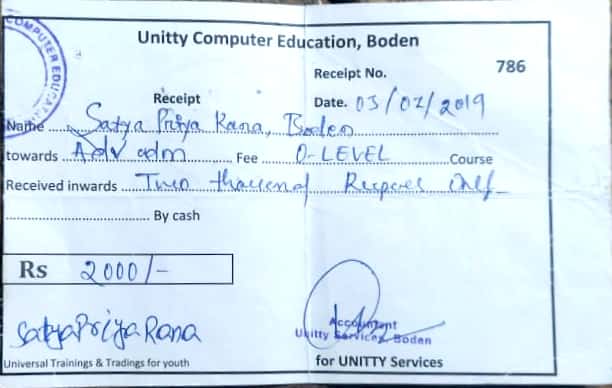 COMPUTER EDUCATION
Unitty Computer Education, Boden
Receipt No. 786
Receipt Date. 03/07/2019
Name Satya Priya Rana, Boden
towards Adv adm Fee O-LEVEL Course
Received inwards Two thousand Rupees Only
By cash
Rs 2000/-
SatyaPriyaRana
Accountant
Unitty Services, Boden
Universal Trainings & Tradings for youth for UNITTY Services